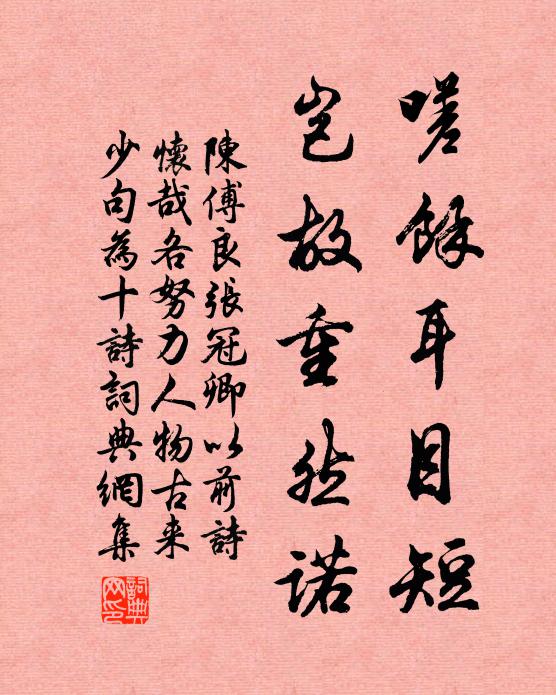 嗟餘耳目短
豈故重然諾
陳傅良張冠卿以前詩
懷哉各努力人物古来
少句為十詩詞典網集